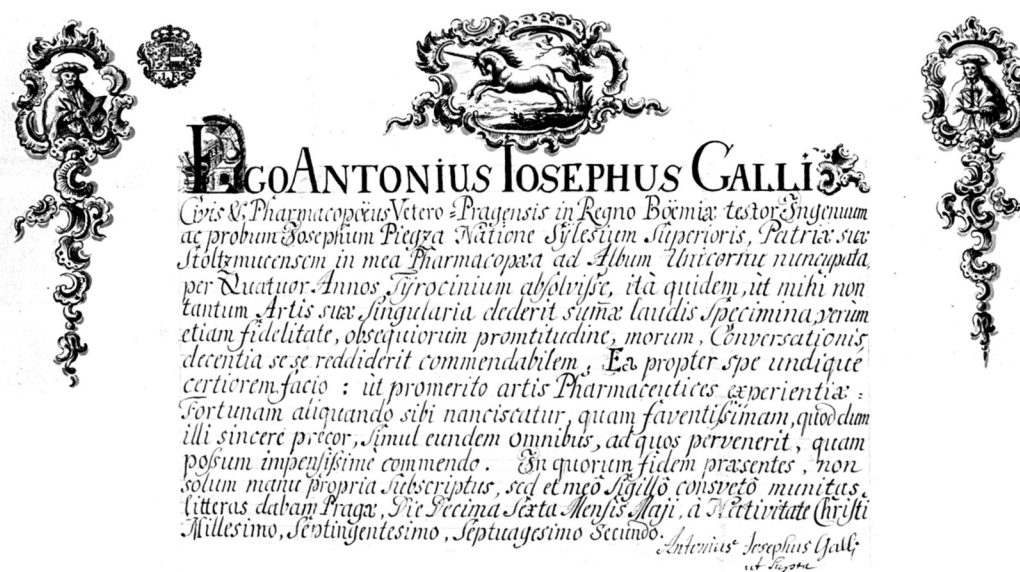 EGO ANTONIUS IOSEPHUS GALLI
Civis &, Pharmacopœus Vetero=Pragensis in Regno Böemiæ testor Ingenuum
ac probum Josephum Piegza Natione Sylesium Superioris, Patriæ suæ
Stoltzmucensem in mea Pharmacopæa ad Album Unicornu nuncupata,
per Quatuor Annos Tyrocinium absolvisse, ità quidem, ùt mihi non
tantum Artis suæ Singularia dederit sum̄æ laudis Specimina, verum
etiam fidelitate, obsequiorum promtitudine, morum, Conversationis
decentia se se reddiderit commendabilem, Ea propter spe undiquè
certiorem facio : ùt promerito artis Pharmaceutices experientiæ =
Fortunam aliquando sibi nanciscatur, quam faventissimam, quod dum
illi sincere precor, Simul eundem omnibus, ad quos pervenerit, quam
possum impensissimè commendo. In quorum fidem præsentes, non
solum manu propria Subscriptus, sed et meô Sigillô consvetô munitas
litteras dabam Pragæ, Die Decima Sexta Mensis Maji, à Nativitate Christi
Millesimo, Septingentesimo, Septuagesimo Secundo.
Antonius Josephus Galli
ut Supra